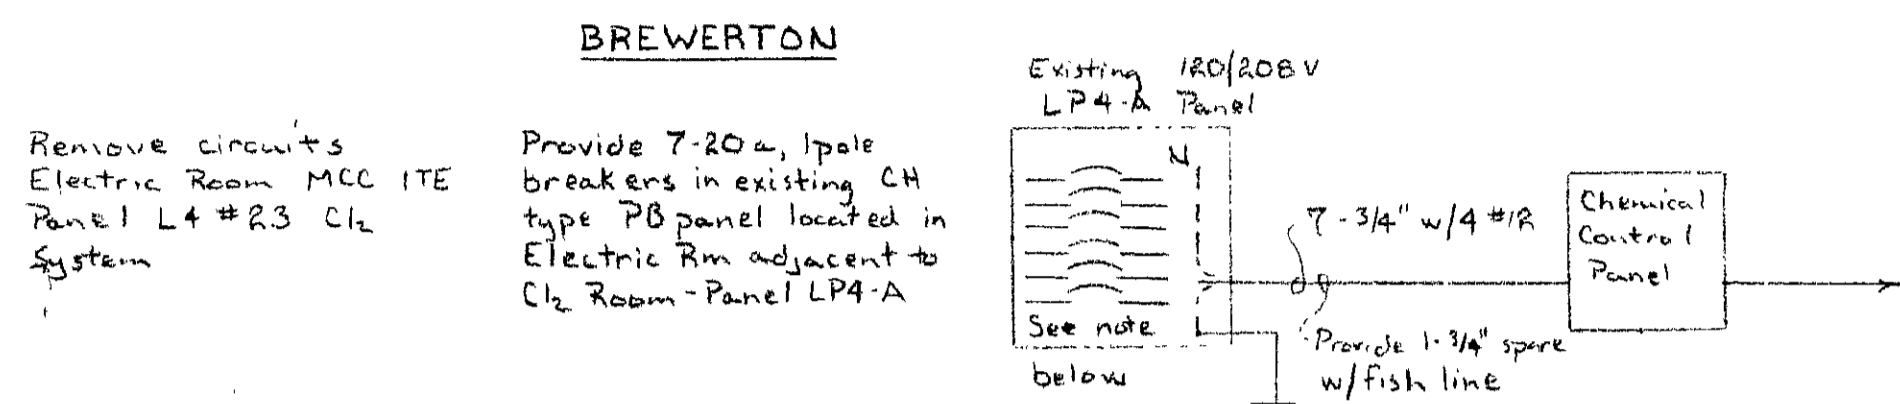 BREWERTON
Remove circuits
Electric Room MCC ITE
Panel L4 #23 Cl2
System
Provide 7-20 a, 1pole
breakers in existing CH
type PB panel located in
Electric Rm adjacent to
Cl2 Room - Panel LP4-A
Existing 120/208 V
LP4-A Panel
N
See note
below
7 - 3/4" w/4 #12
Provide 1-3/4" spare
w/fish line
Chemical
Control
Panel